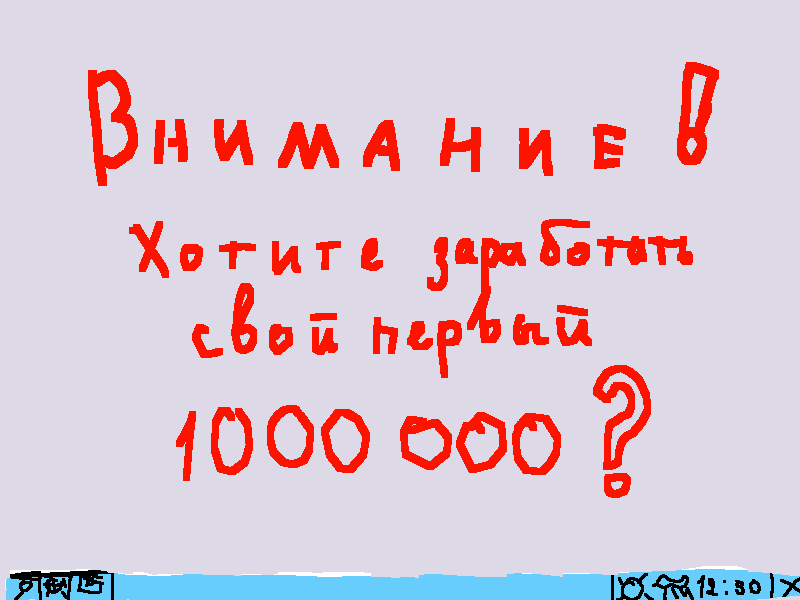 Внимание!
Хотите заработать
свой первый
1000 000?
12:30